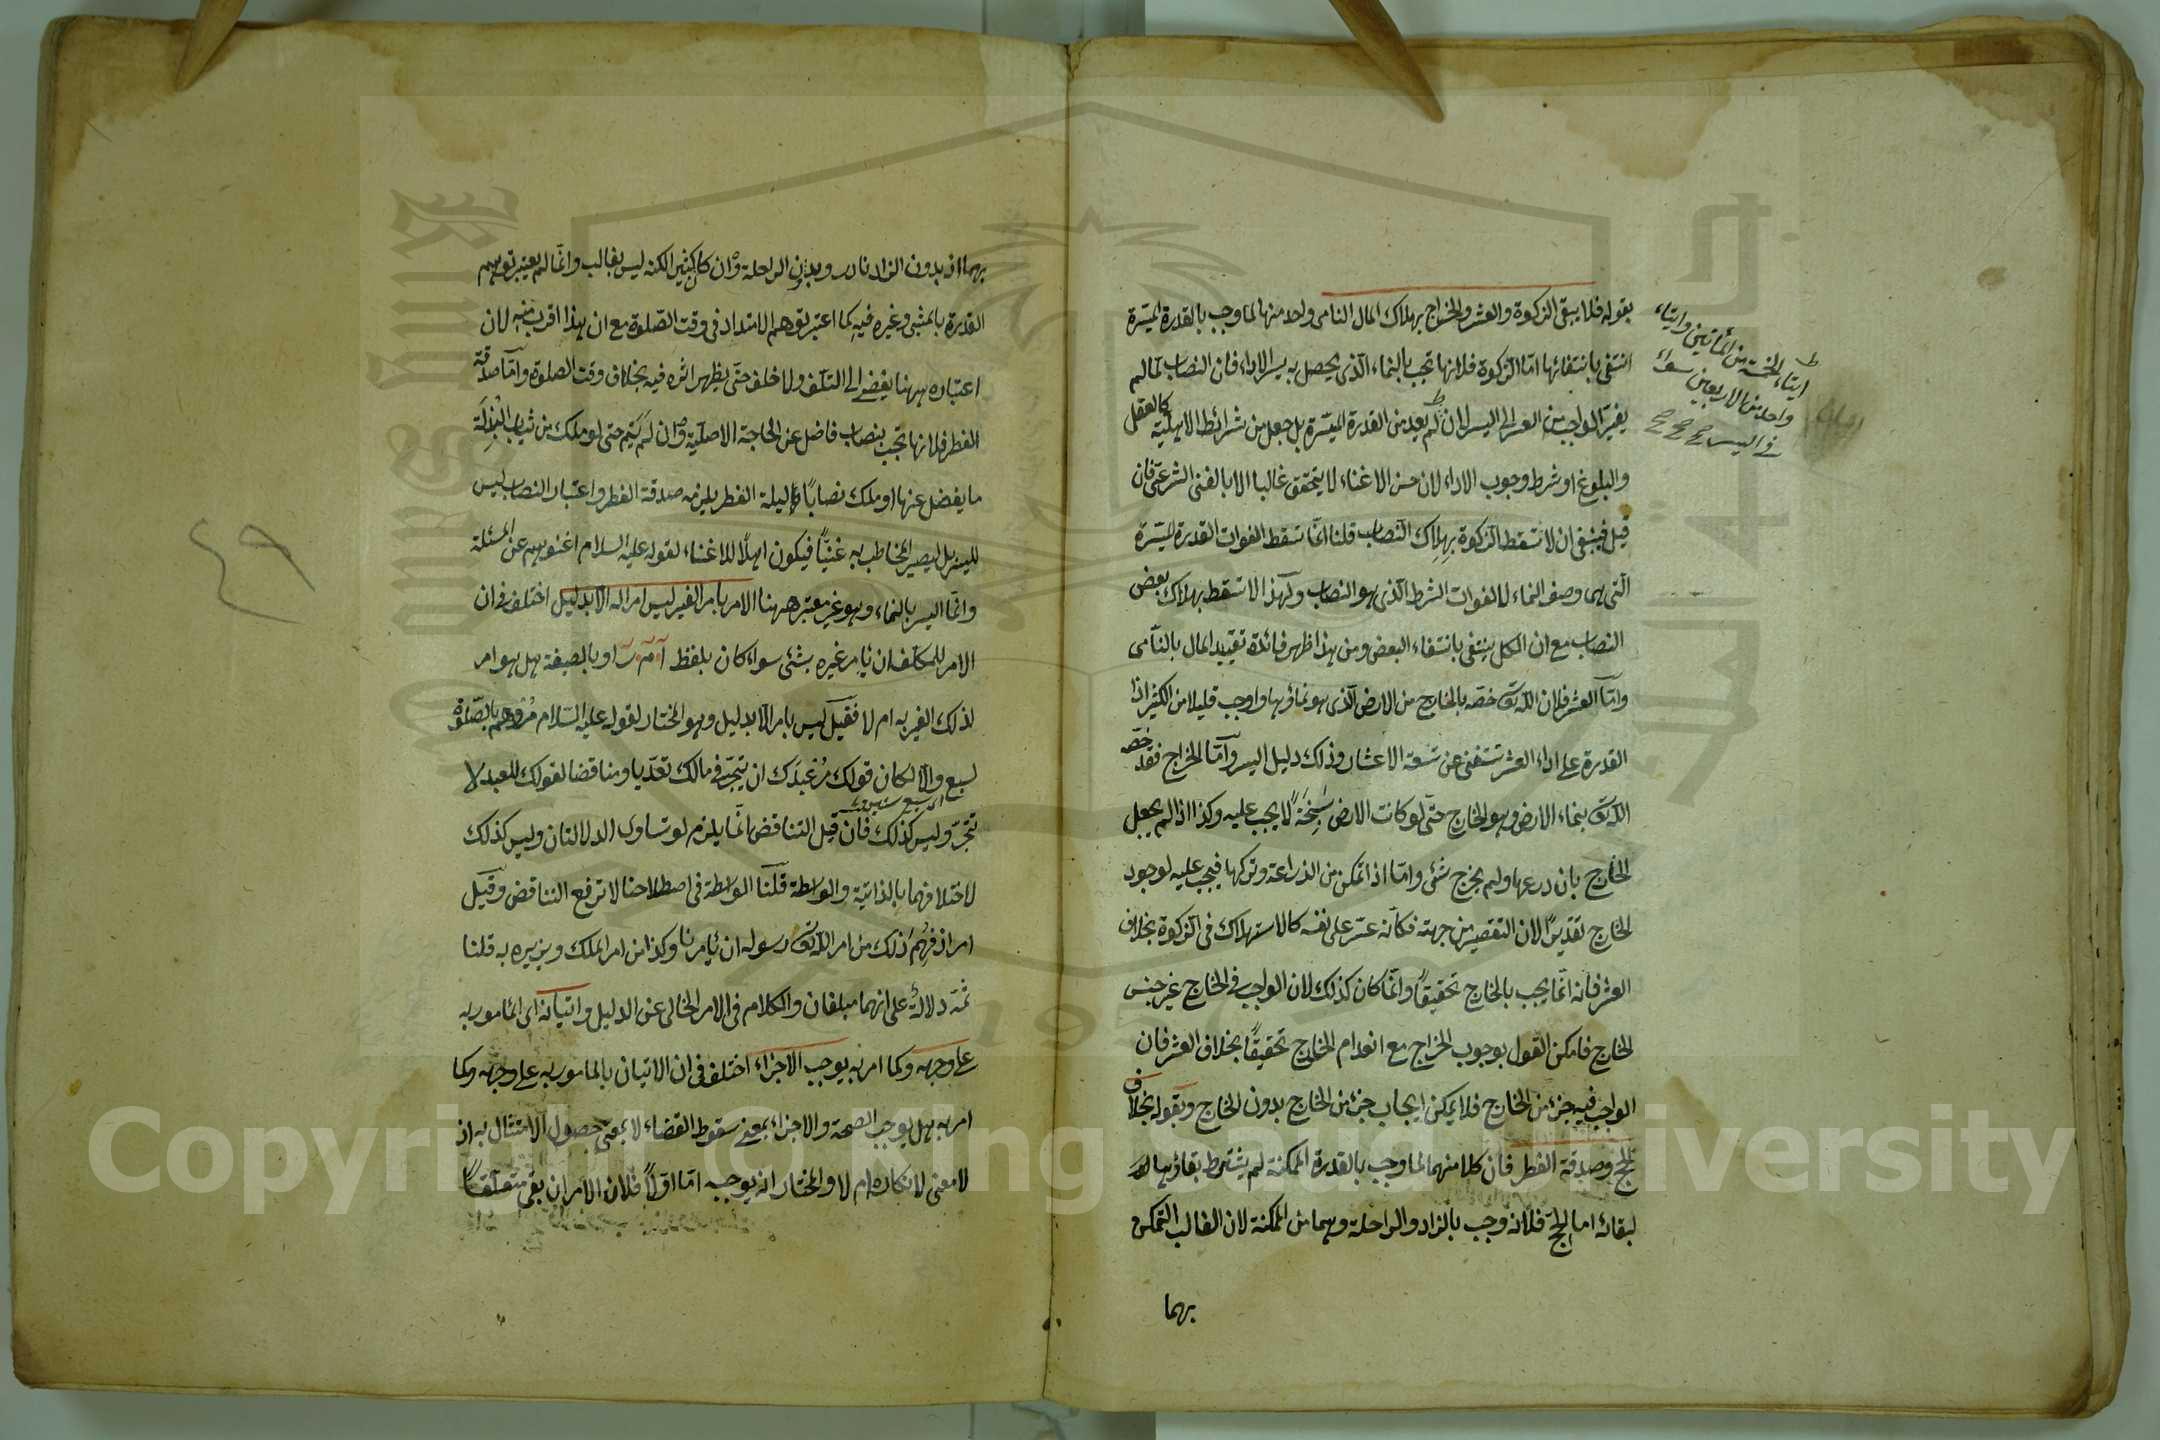 بقوله فلا يبقى الزكوة والعشر والخراج بهلاك المال النامى ولحد منها لما وجب بالقدرة الميسّرة
انتفى بانتفائها امّا الزكوة فلانها تجب بالنماء الّذى يحصل به يسر الاداء فان النصاب لما لم
يغيّر الواجب من العسر الى اليسر لان لم يعد من القدرة الميسّرة بل جعل من شرائط الاهليّة كالعقل
والبلوغ او شرط وجوب الاداء لان حسن الاغناء لا يتحقق غالبا الا بالغنى الشرعىّ فان
قيل فينبغى ان لا تسقط الزكوة بهلاك النّصاب قلنا انّما تسقط لفوات القدرة الميسّرة
الّتى هى وصف النماء لا لفوات الشرط الّذى هو النصاب ولهذا لا تسقط بهلاك بعض
النصاب مع ان الكل ينتفى بانتفاء البعض ومن هذا ظهر فائدة تقييد المال بالنّامى
وامّا العشر فلان اللّه تعالى خصّه بالخارج من الارض الّذى هو نماؤها واوجب قليلا من الكثير اذا
القدرة على اداء العشر تستغنى عن تسعة الاعشار وذلك دليل اليسر وامّا الخراج فقد خصّه
اللّه تعالى بنماء الارض وهو الخارج حتّى لو كانت الارض سَبِخَةً لا يجب عليه وكذا اذا لم يجعل
الخارج بان زرعها ولم يخرج شئ وامّا اذا تمكن من الزراعة وتركها فيجب عليه لوجود
الخارج تقديرًا لان التقصير من جهته فكأنه عسّر على نفسه كالاستهلاك فى الزكوة بخلاف
العشر فانه انّما يجب بالخارج تحقيقًا وانّما كان كذلك لان الواجب فى الخارج غير جنس
الخارج فامكن القول بوجوب الخراج مع انعدام الخارج تحقيقًا بخلاف العشر فان
الواجب فيه جزء من الخارج فلا يمكن ايجاب جزء من الخارج بدون الخارج وبقوله بخلاف
الحج وصدقة الفطر فان كلا منهما لما وجب بالقدرة الممكنة لم يشترط بقاؤها
لبقائه اما الحجّ فلانه وجب بالزاد والراحلة وهما من الممكنة لان الغالب التمكن
بهما
ايتاء الخمسة من المأتين وايتاء
واحد من الاربعين سواء
فى اليسر
بهما اذ بدون الزاد نادر وبدون الراحلة وان كان كثيرا لكنه ليس بغالب وانّما لم يعتبر توهم
القدرة بالمشى وغيره فيه كما اعتبر توهم الامتداد فى وقت الصّلوة مع ان هذا اقرب منه لان
اعتباره ههنا يفضى الى التلف ولا خلف حتّى يظهر اثره فيه بخلاف وقت الصلوة وامّا صدقة
الفطر فلانها تجب بنصاب فاضل عن الحاجة الاصليّة وان لم يَنْم حتى لو ملك من ثياب البِذْلَة
ما يفضل عنها او ملك نصابًا ليلة الفطر يلزمه صدقة الفطر واعتبار النصاب ليس
لليسر بل ليصير المخاطب به غنيّا فيكون اهلًا للاغناء لقوله عليه السلام اغنوهم عن المسئلة
وانّما اليسر بالنماء وهو غير معتبر ههنا الامر بامر الغير ليس امرا له الّا بدليل اختلف فى ان
الامر للمكلّف ان يأمر غيره بشئ سواء كان بلفظ اَ مَ رَ او بالصيغة هل هو امر
لذلك الغير به ام لا فقيل ليس بامر الّا بدليل وهو المختار لقوله عليه السّلام مُرُوهم بالصّلوة
لسبع والّا لكان قولك مُرْ عبدَك ان يتّجر فى مالك تعدّيا ومناقضا لقولك للعبد لا
اى سبع سنين
تتّجر وليس كذلك فان قيل التناقض انّما يلزم لو تساوى الدلالتان وليس كذلك
لاختلافهما بالذاتيّة والواسطة قلنا الواسطة فى اصطلاحنا لا ترفع التناقض وقيل
امر اذ فُهِم ذلك من امر اللّه تعالى رسوله ان يأمرنا وكذا من امر الملك وزيره به قلنا
ثمّة دلالةٌ على انهما مبلغان والكلام فى الامر الخالى عن الدليل واتيانه اى المأمور به
على وجهه وكما امر به يوجب الاجزاء اختلف فى ان الاتيان بالمامور به على وجهه وكما
امر به هل يوجب الصحة والاجزاء بمعنى سقوط القضاء لا بمعنى حصول الامتثال به اذ
لا معنى لانكاره ام لا والمختار انه يوجبه امّا اوّلًا فلان الامر ان بقى متعلّقًا
٤٩
Copyright © King Saud University